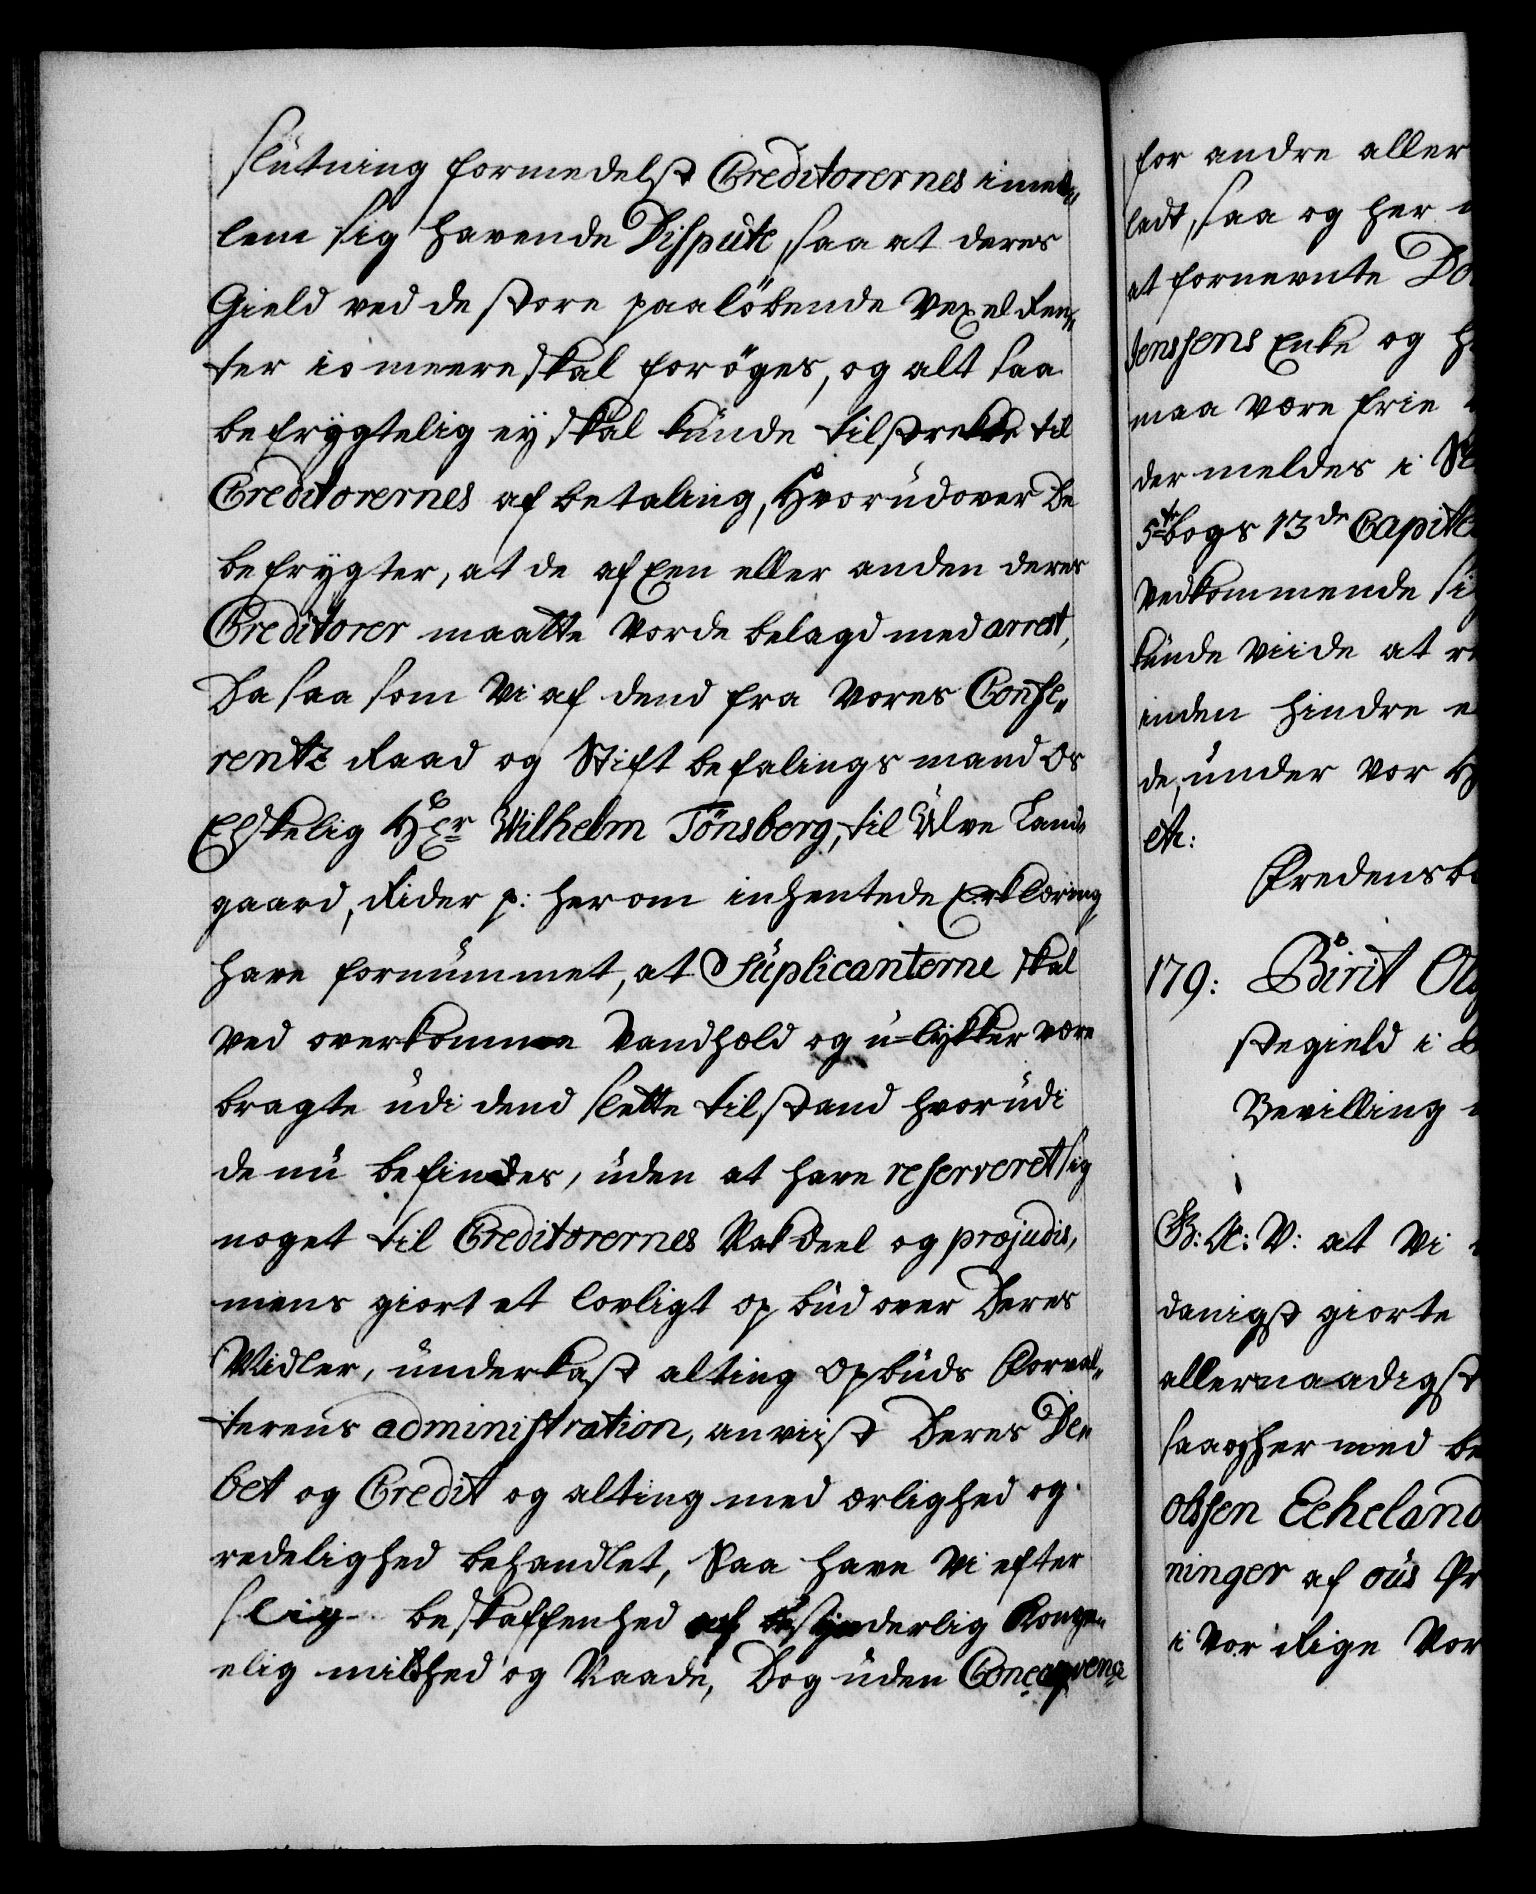 slutning formedelst Creditorernes imel„
lem sig havende Dispute, saa at deres
Gield ved de store paaløbende Vexel Ren„
ter io meere skal forøges, og alt saa
befrygtelig ey skal kunde tilstrekke til
Creditorernes afbetaling, Hvorudover De
befrygter, at de af Een eller anden deres
Creditorer maatte vorde belagd med arrest,
Da saa som Vi af dend fra Vores Confe„
rentz Raad og Stift befalings mand Os
Elskelig Hr. Wilhelm Tönsberg, til Ulve Land
gaard, Rider p: herom inhentede Erklæring
have fornummet, at Supplicanterne skal
ved overkommen Vandheld og u-lykker være
bragte udi dend slette tilstand hvorudi
de nu befindes, uden at have reserveret sig
noget til Creditorernes Nakdeel og præjudis,
mens giort et lovligt opbud over Deres
Midler, underkast alting Opbuds Forval„
terens administration, anviist Deres De„
bet og Credit og alting med ærlighed og
redelighed behandlet, Saa have Vi efter
slig beskaffenhed af synderlig Konge„
elig mildhed og Naade, Dog uden
for andre aller
ladt, saa og her
at fornevnte
Jenssens Enke og
maa være frie
der meldes i
5te bogs 13de Capitel
Vedkommende
kunde viide at
inden hindre
de, under vor
etc:
Fredensb
179: Birit
stegield i
Bevilling
G: A: V: at Vi
danigst giorte
allernaadigst
saa og her med be
olssen Eekeland
ninger af ous
i vor Rige Nor